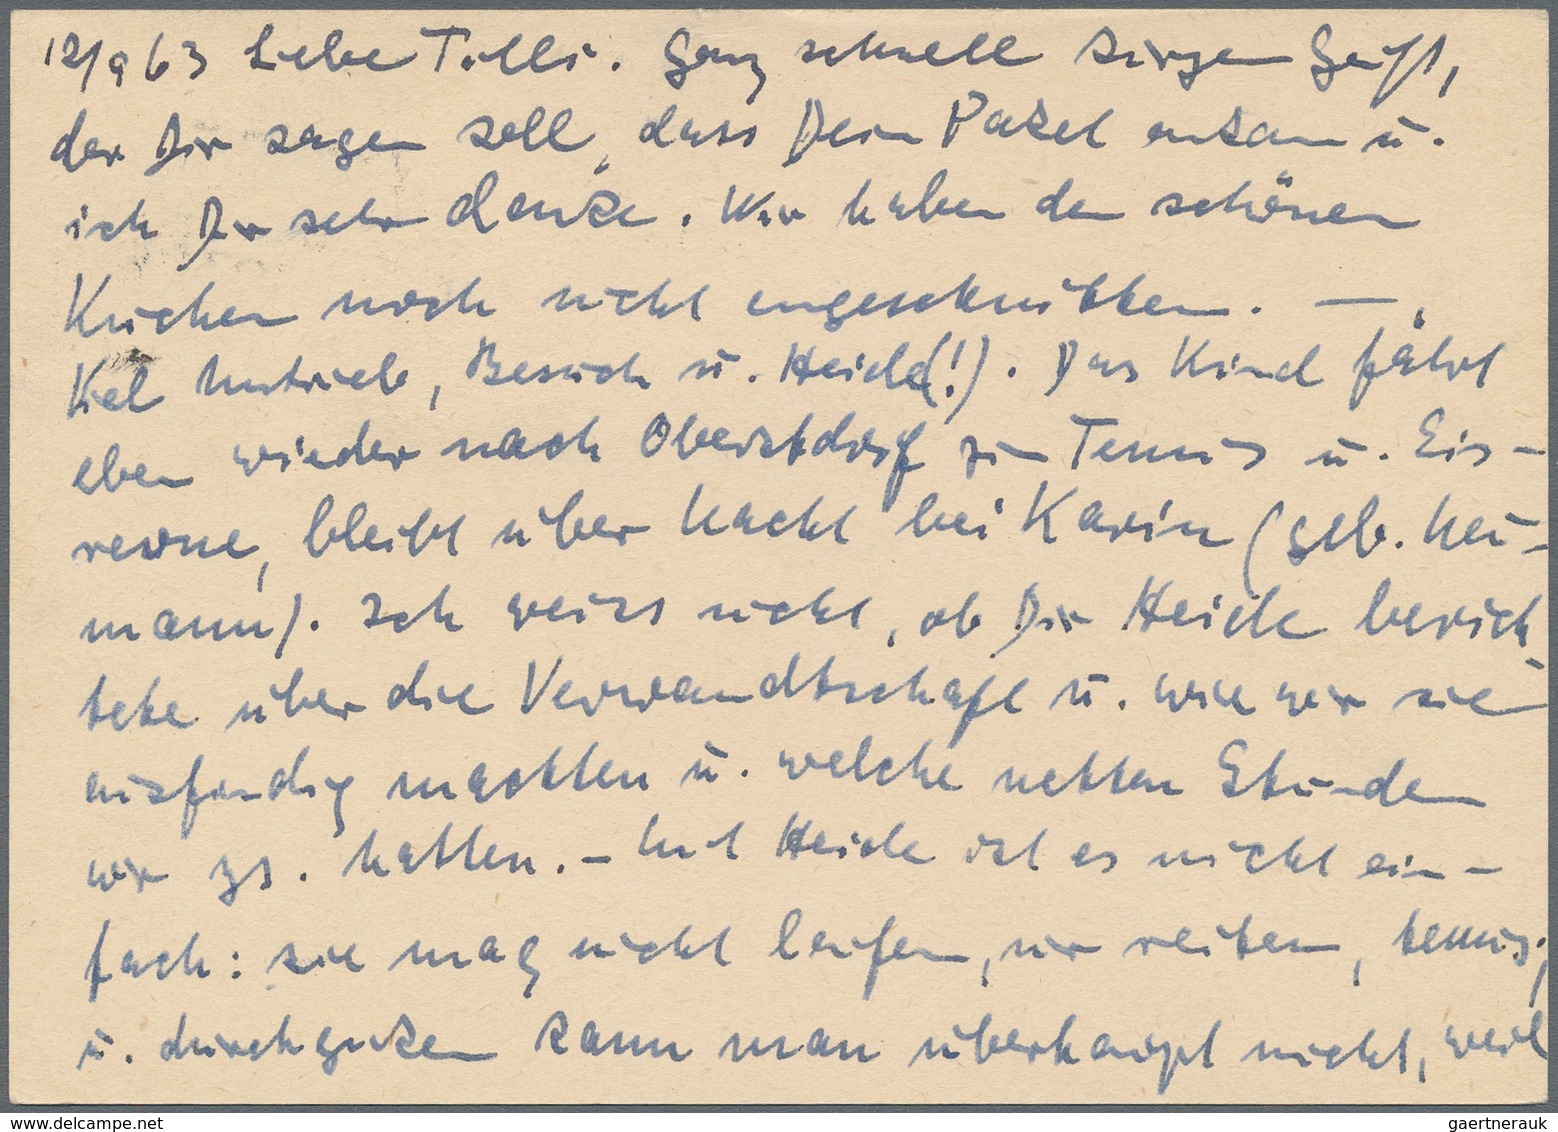 12/9 63 Liebe Tilli. Ganz schnell kurzen Gruß,
der Dir sagen soll, dass Dein Paket ankam u.
ich Dir sehr danke. Wir haben den schönen
Kuchen noch nicht angeschnitten. —
Viel Umtrieb, Besuch u. Heide(!). Das Kind fährt
eben wieder nach Oberstdorf zu Tennis u. Eis-
revue, bleibt über Nacht bei Karin (geb. Neu-
mann). Ich weiss nicht, ob Dir Heide berich
tete über die Verwandtschaft u. wie wir sie
ausfindig machten u. welche netten Stunden
wir zs. hatten. – Mit Heide ist es nicht ein-
fach: sie mag nicht laufen, nur reiten, tennis,
u. durchgucken kann man überhaupt nicht, weil
gaertnerauk